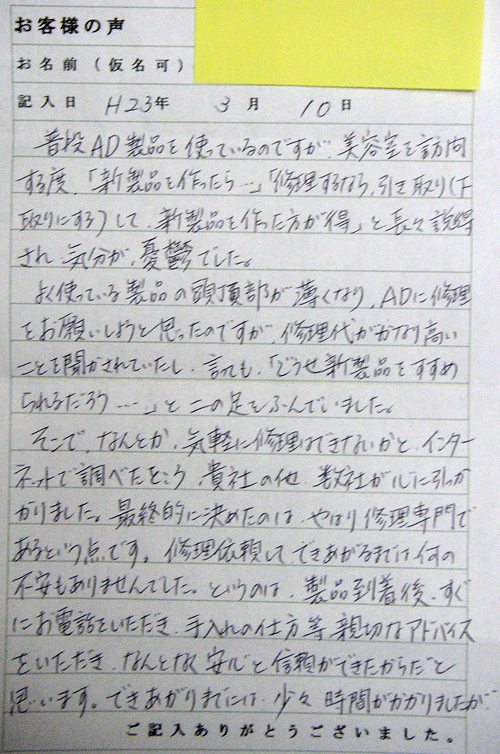 お客様の声
お名前(仮名可)
記入日 H23年 3月 10日
普段AD製品を使っているのですが、美容室を訪問
する度、「新製品を作ったら…」「修理するなら、引き取り(下
取りにする)して、新製品を作った方が得」と長々説得
され、気分が、憂鬱でした。
よく使っている製品の頭頂部が薄くなり、ADに修理
をお願いしようと思ったのですが、修理代がかなり高い
ことを聞かされていたし、言っても、「どうせ新製品をすすめ
られるだろう…」と二の足をふんでいました。
そこで、なんとか、気軽に修理はできないかと、インター
ネットで調べたところ、貴社の他、数社が心に引っか
かりました。最終的に決めたのは、やはり修理専門で
あるという点です。修理依頼して、できあがるまでは何の
不安もありませんでした。というのは、製品到着後、すぐ
にお電話をいただき、手入れの仕方等、親切なアドバイス
をいただき、なんとなく安心と信頼ができたからだと
思います。できあがりまでには、少々時間がかかりましたが、
ご記入ありがとうございました。